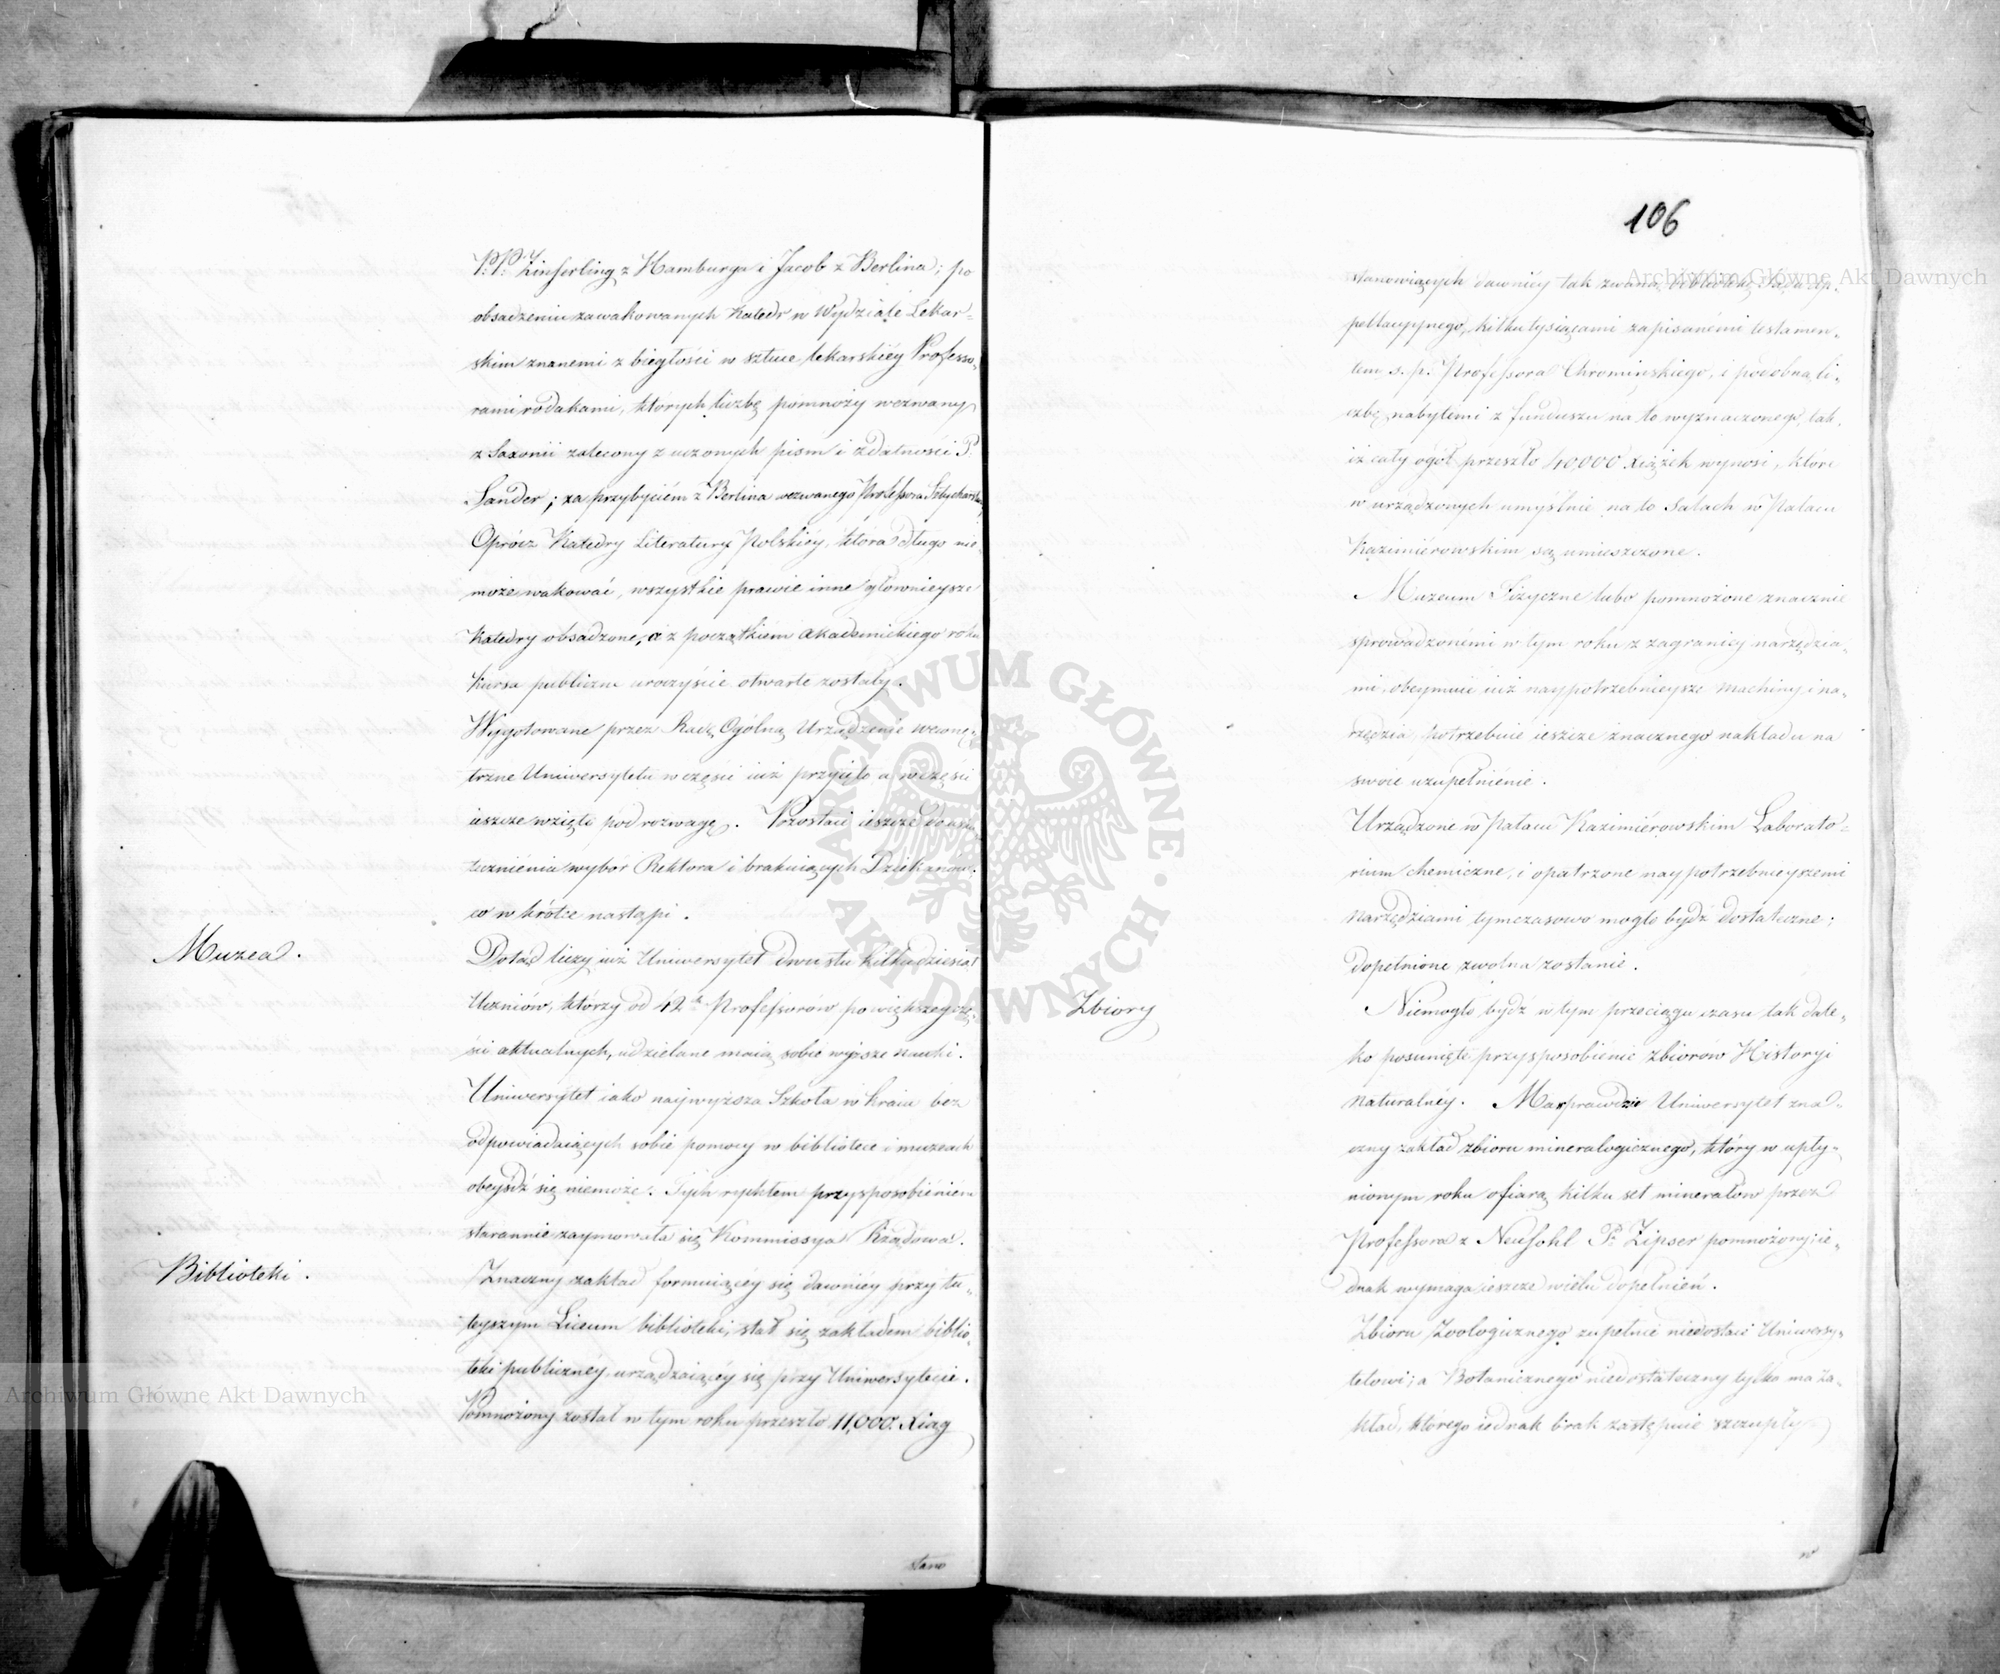 P.P. Zinserling z Hamburga i Jacob z Berlina; po
obsadzeniu zawakowanych Katedr w Wydziale Lekar-
skim znanemi z biegłości w sztuce lekarskiéy Professo-
rami rodakami, których liczbę pomnoży wezwany
z Saxonii zalecony z uczonych pism i zdatności P.
Sander; za przybyciém z Berlina wezwanego Professora Sztycharstwa
Oprócz Katedry Literatury Polskiéy, która długo nie-
może wakować, wszystkie prawie inne głównieysze
Katedry obsadzone, a z początkiem akademickiego roku
Kursa publiczne uroczyście otwarte zostały.
Wygotowane przez Radę Ogólną Urządzenie wewnę-
trzne Uniwersytetu w części iuż przyięte a w części
ieszcze wzięte pod rozwagę. Pozostaie ieszcze do usku-
tecznienia wybor Rektora i brakuiących Dziekanów,
co w krótce nastąpi.
Muzea.
Dotąd liczy iuż Uniwersytet dwustu kilkudziesiąt
Uczniów, którzy od 42ch Professorów po większey czę-
ści aktualnych, udzielane maią sobie wyższe nauki.
Uniwersytet iako naywyższa Szkoła w kraiu bez
odpowiadaiących sobie pomocy w bibliotece i muzeach
obeyśdź się niemoże. Tych rychłem przysposobieniem
starannie zaymowała się Kommissya Rządowa.
Biblioteki.
Znaczny zakład formuiącéy się dawniéy przy tu-
teyszym Liceum biblioteki, stał się zakładem biblio-
teki publicznéy, urządzaiącéy się przy Uniwersytecie.
Pomnożony został w tym roku przeszło 11,000. Xiąg
stano
106
stanowiących dawniéy tak zwaną bibliotekę Sądu Ap-
pellacyynego, kilku tysiącami zapisanémi testamen-
tem s. p. Professora Chromińskiego, i podobną li-
czbę nabytemi z funduszu na to wyznaczonego, tak,
iż cały ogół przeszło 40,000 Xiążek wynosi, które
w urządzonych umyślnie na to Salach w Pałacu
Kazimiérowskim są umieszczone.
Muzeum Fizyczne lubo pomnożone znacznie
sprowadzonémi w tym roku z zagranicy narzędzia-
mi, obeymuie iuż naypotrzebnieysze machiny i na-
rzędzia, potrzebuie ieszcze znacznego nakładu na
swoie uzupełnienie.
Urządzone w Pałacu Kazimiérowskim Laborato-
rium chemiczne, i opatrzone naypotrzebnieyszemi
narzędziami tymczasowo mogło bydź dostateczne;
dopełnione zwolna zostanie.
Zbiory
Niemogło bydź w tym przeciągu czasu tak dale-
ko posunięte przysposobienie zbiorów Historyi
Naturalnéy. Ma wprawdzie Uniwersytet zna-
czny zakład zbioru mineralogicznego, który w upły-
nionym roku ofiarą kilku set minerałów przez
Professora z Neusohl P. Zipser pomnożony; ie-
dnak wymaga ieszcze wielu dopełnień.
Zbioru Zoologicznego zupełnie niedostaie Uniwersy-
tetowi; a Botanicznego niedostateczny tylko ma Za-
kład, którego iednak brak zastępuie szczupły
w
Archiwum Główne Akt Dawnych
ARCHIWUM GŁÓWNE · AKT DAWNYCH ·
Archiwum Główne Akt Dawnych